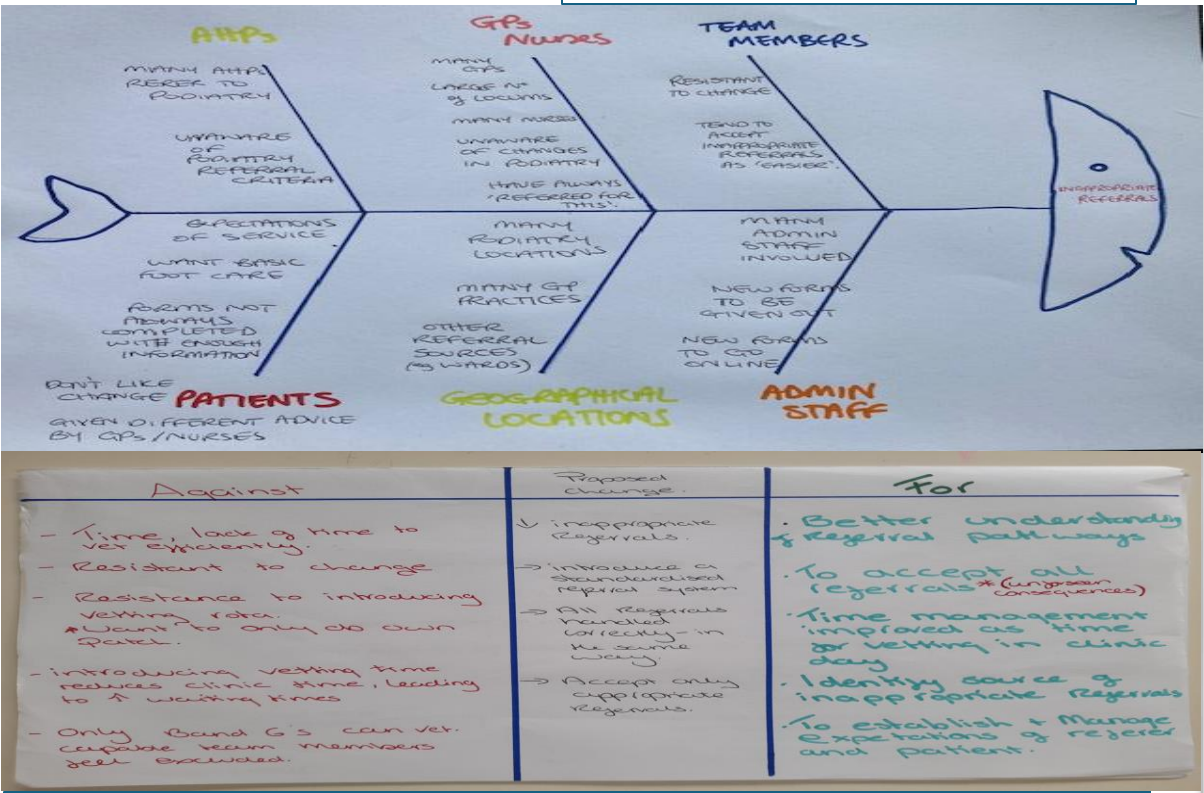 AHPs
MANY AHPs
RERER TO
PODIATRY
UNAWARE
OF
PODIATRY
REFERRAL
CRITERIA
GPs
NURSES
MANY
GPs
LARGE Nº
of LOCUMS
MANY NURSES
UNAWARE
OF CHANGES
IN PODIATRY
HAVE ALWAYS
'REFERRED FOR
THIS'.
TEAM
MEMBERS
RESISTANT
TO CHANGE
TEND TO
ACCEPT
INAPPROPRIATE
REFERRALS
AS 'EASIER'.
INAPPROPRIATE
REFERRALS
EXPECTATIONS
OF SERVICE
WANT BASIC
FOOT CARE
FORMS NOT
ALWAYS
COMPLETED
WITH ENOUGH
INFORMATION
DON'T LIKE
CHANGE
PATIENTS
GIVEN DIFFERENT ADVICE
BY GPs/NURSES
MANY
PODIATRY
LOCATIONS
MANY GP
PRACTICES
OTHER
REFERRAL
SOURCES
(eg WARDS)
GEOGRAPHICAL
LOCATIONS
MANY
ADMIN
STAFF
INVOLVED
NEW FORMS
TO BE
GIVEN OUT
NEW FORMS
TO GO
ONLINE
ADMIN
STAFF
Against
- Time, lack of time to
vet efficiently.
- Resistant to change
- Resistance to introducing
vetting rota.
*Want to only do own
patch.
- introducing vetting time
reduces clinic time, leading
to ↑ waiting times
- Only Band 6's can vet.
capable team members
feel excluded.
Proposed
change.
↓ inappropriate
Referrals.
→ introduce a
standardised
referral system
→ All Referrals
handled
correctly - in
the same
way.
→ Accept only
appropriate
Referrals.
For
· Better understanding
of Referral pathways
· To accept all
referrals *(unforseen
consequences)
· Time management
improved as time
for vetting in clinic
day
· Identify source of
inappropriate Referrals
· To establish + Manage
expectations of referer
and patient.